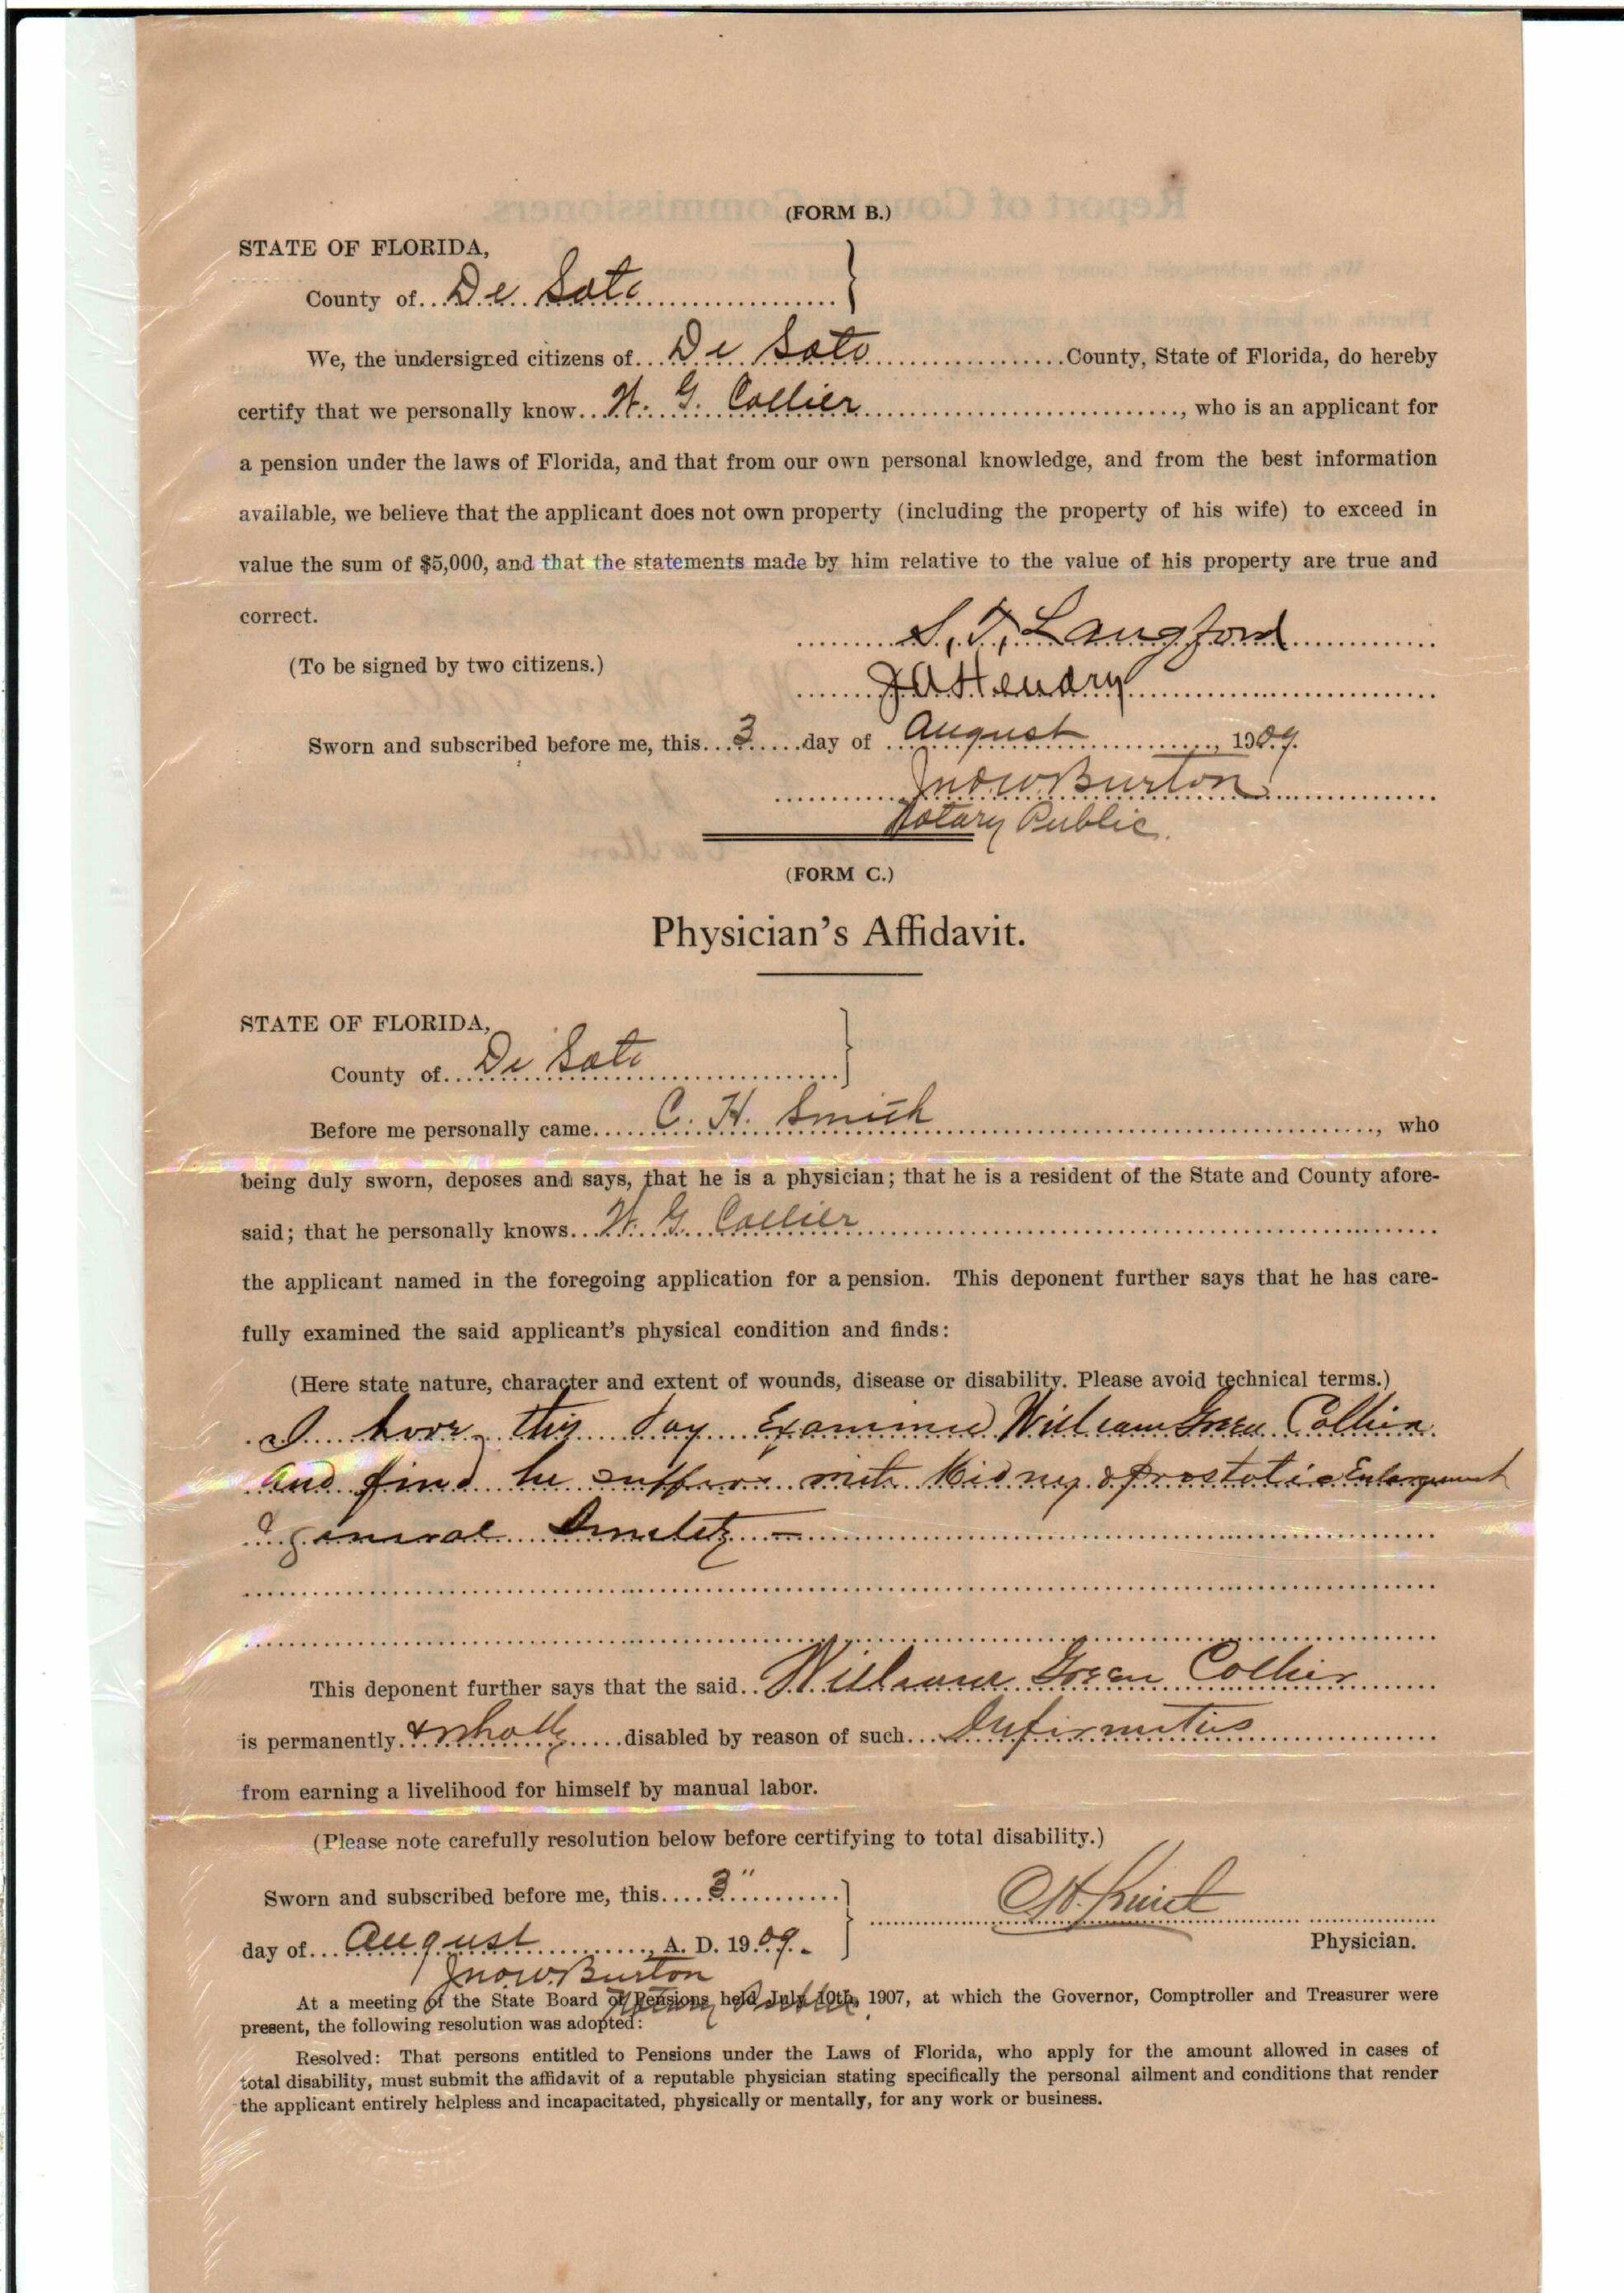 (FORM B.)
STATE OF FLORIDA,
County of De Soto
We, the undersigned citizens of De Soto County, State of Florida, do hereby
certify that we personally know W. G. Collier, who is an applicant for
a pension under the laws of Florida, and that from our own personal knowledge, and from the best information
available, we believe that the applicant does not own property (including the property of his wife) to exceed in
value the sum of $5,000, and that the statements made by him relative to the value of his property are true and
correct.
S. T. Langford
(To be signed by two citizens.)
J A Hendry
Sworn and subscribed before me, this 3 day of August, 1909.
Jno W Burton
Notary Public.
(FORM C.)
Physician's Affidavit.
STATE OF FLORIDA,
County of De Soto
Before me personally came C. H. Smith, who
being duly sworn, deposes and says, that he is a physician; that he is a resident of the State and County afore-
said; that he personally knows W. G. Collier
the applicant named in the foregoing application for a pension. This deponent further says that he has care-
fully examined the said applicant's physical condition and finds:
(Here state nature, character and extent of wounds, disease or disability. Please avoid technical terms.)
I have this day Examined William Green Collier
and find he suffers with Kidney & Prostatic Enlargement
& general
This deponent further says that the said William Green Collier
is permanently & wholly disabled by reason of such Infirmities
from earning a livelihood for himself by manual labor.
(Please note carefully resolution below before certifying to total disability.)
Sworn and subscribed before me, this 3"
day of August, A. D. 1909.
CH. Smith
Physician.
Jno. W. Burton
Notary Public.
At a meeting of the State Board of Pensions held July 10th, 1907, at which the Governor, Comptroller and Treasurer were
present, the following resolution was adopted:
Resolved: That persons entitled to Pensions under the Laws of Florida, who apply for the amount allowed in cases of
total disability, must submit the affidavit of a reputable physician stating specifically the personal ailment and conditions that render
the applicant entirely helpless and incapacitated, physically or mentally, for any work or business.